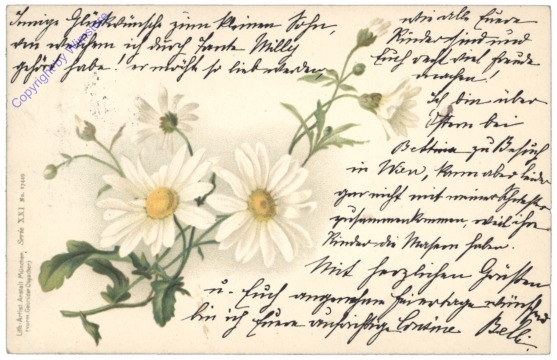 Innige Glückwünsche zum kleinen Sohn,
von welchem ich durch Tante Milly
gehört habe! er möchte so lieb werden
wie alle Euere
Kinder sind und
Euch recht viel Freude
machen!
Ich bin über
Ostern bei
Bettina zu Besuch
in Wien, kann aber leider
gar nicht mit meiner Schwester
zusammenkommen, weil ihre
Kinder die Masern haben.
Mit herzlichen Grüssen
u. Euch angenehme Feiertage wünschend
bin ich Euere aufrichtige Cousine Belli.
Lith.-Artist. Anstalt München, Serie XXI No.
(vorm. Gebrüder Obpacher)
Copyright by